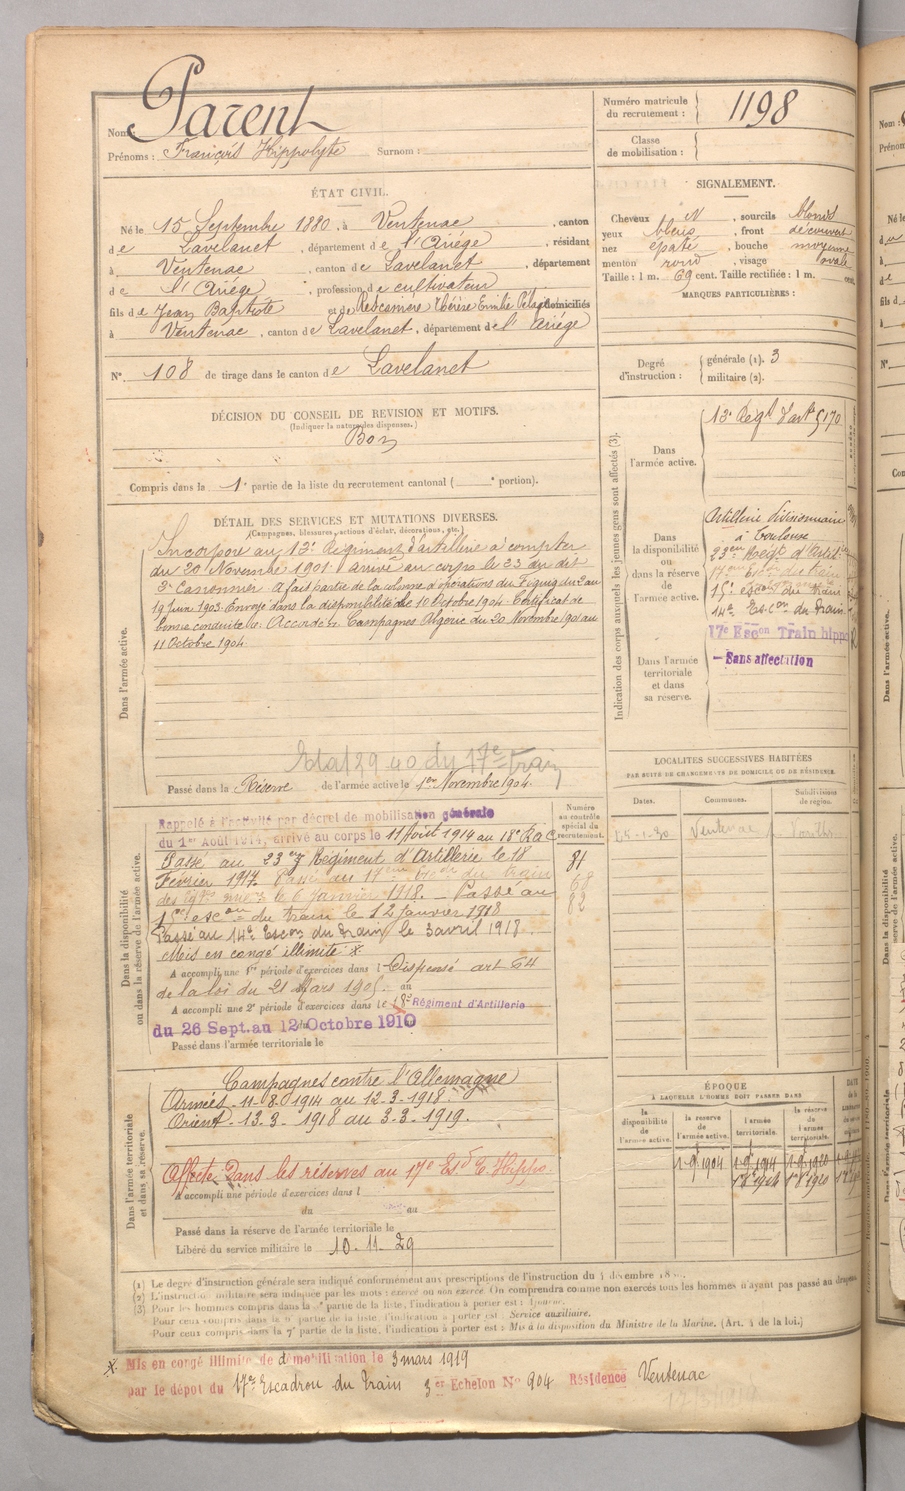 Nom : Parent
Prénoms : François Hippolyte Surnom :
Numéro matricule du recrutement : 1198
Classe de mobilisation :
ÉTAT CIVIL.
Né le 15 Septembre 1880, à Ventenac, canton
de Lavelanet, département de l'Ariège, résidant
à Ventenac, canton de Lavelanet, département
de l'Ariège, profession de cultivateur
fils de Jean Baptiste et de Thérèse Emilie domiciliés
à Ventenac, canton de Lavelanet, département de l'Ariège
N° 108 de tirage dans le canton de Lavelanet
SIGNALEMENT.
Cheveux N, sourcils blonds
yeux bleus, front découvert
nez épaté, bouche moyenne
menton rond, visage ovale
Taille : 1 m. 69 cent. Taille rectifiée : 1 m. cent.
MARQUES PARTICULIÈRES :
Degré d'instruction : générale (1). 3
militaire (2).
DÉCISION DU CONSEIL DE REVISION ET MOTIFS.
(Indiquer la nature des dispenses.)
Bon
Compris dans la 1e partie de la liste du recrutement cantonal ( e portion).
DÉTAIL DES SERVICES ET MUTATIONS DIVERSES.
(Campagnes, blessures, actions d'éclat, décorations, etc.)
Dans l'armée active.
Incorporé au 13e Régiment d'artillerie à compter
du 20 Novembre 1901 arrivé au corps le 23 du dit
2e Canonnier A fait partie de la colonne d'opérations du Figuig du 2 au
19 Juin 1903 Envoyé dans la disponibilité le 10 Octobre 1904 - Certificat de
bonne conduite Accordé. Campagnes Algérie du 20 Novembre 1901 au
11 Octobre 1904
Etat 29-40 du 17e train
Passé dans la Réserve de l'armée active le 1er Novembre 1904
Dans la disponibilité ou dans la réserve de l'armée active.
Numéro au contrôle spécial du recrutement.
Rappelé à l'activité par décret de mobilisation générale
du 1er Août 1914, arrivé au corps le 11 Août 1914 au 18e RAC
Passé au 23eme Régiment d'Artillerie le 18
Février 1917. Passé au 17eme Escon du train
le 6 Janvier 1918. - Passé au
15e escon du train le 12 Janvier 1918
Passé au 14e Escon du Train le 3 avril 1918.
Mis en congé illimité x
81
68
82
A accompli une 1re période d'exercices dans l Dispensé art 64
de la loi du 21 Mars 1905. au
A accompli une 2e période d'exercices dans le 18e Régiment d'Artillerie
du 26 Sept. au 12 Octobre 1910
Passé dans l'armée territoriale le
Dans l'armée territoriale et dans sa réserve.
Campagnes contre l'Allemagne
Armées 11-8-1914 au 12-3-1918.
Orient - 13-3-1918 au 3-3-1919.
Affecté Dans les réserves au 17e Esd T. Hippo.
A accompli une période d'exercices dans l
du au
Passé dans la réserve de l'armée territoriale le
Libéré du service militaire le 10-11-29
Indication des corps auxquels les jeunes gens sont affectés (3).
Dans l'armée active.
13e Régt d'art 5170
Dans la disponibilité ou dans la réserve de l'armée active.
Artillerie divisionnaire
à Toulouse
23eme Regt d'Artil
17eme Escon du train
15e escon du train
14e Escon du Train
17e Escon Train hippo
Dans l'armée territoriale et dans sa réserve.
- Sans affectation
LOCALITÉS SUCCESSIVES HABITÉES
PAR SUITE DE CHANGEMENTS DE DOMICILE OU DE RÉSIDENCE.
Dates. Communes. Subdivisions de région.
25-1-30 Ventenac
ÉPOQUE
À LAQUELLE L'HOMME DOIT PASSER DANS
la disponibilité de l'armée active. la réserve de l'armée active. l'armée territoriale. la réserve de l'armée territoriale.
1-9-1904 1-9-1914 1-9-1920
(1) Le degré d'instruction générale sera indiqué conformément aux prescriptions de l'instruction du 4 décembre
(2) L'instruction militaire sera indiquée par les mots : exercé ou non exercé. On comprendra comme non exercés tous les hommes n'ayant pas passé au drapeau
(3) Pour les hommes compris dans la partie de la liste, l'indication à porter est : Ajourné.
Pour ceux compris dans la partie de la liste, l'indication à porter est : Service auxiliaire.
Pour ceux compris dans la 7e partie de la liste, l'indication à porter est : Mis à la disposition du Ministre de la Marine. (Art. 4 de la loi.)
x Mis en congé illimité de démobilisation le 3 mars 1919
par le dépot du 17e Escadron du Train 3e Echelon N° 904 Résidence Ventenac